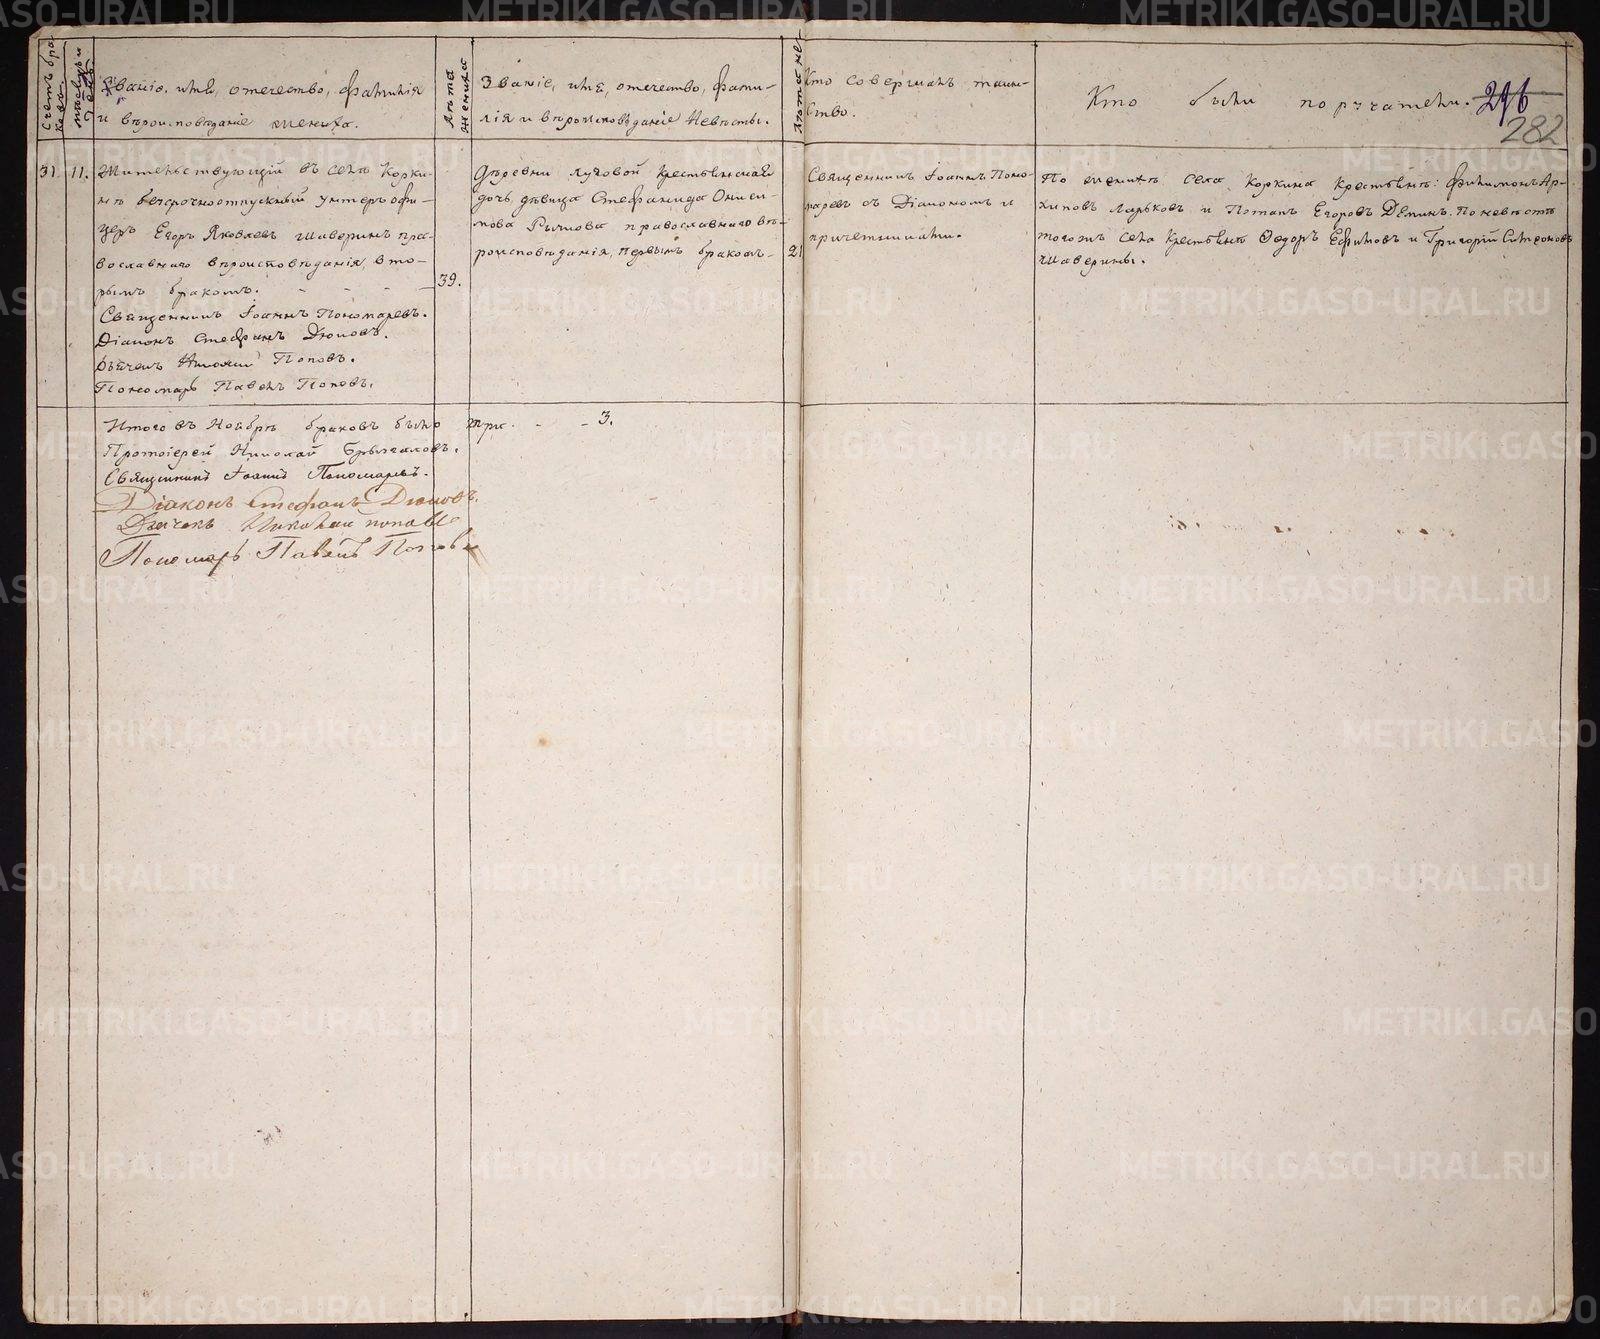 Счетъ бра-
ковъ.
Мѣсяцъ и
день.
Званіе, имя, отечество, фамилія
и вѣроисповѣданіе жениха.
Лѣта
жениха
Званіе, имя, отечество, фами-
лія и вѣроисповѣданіе Невѣсты.
Лѣта не-
Кто совершалъ таин-
ство.
Кто были поручатели.
296
282
31.
11.
Жительствующій въ селѣ Корки-
нѣ безсрочноотпускный унтеръ офи-
церъ Егоръ Яковлевъ Шаверинъ пра-
вославнаго вѣроисповѣданія, вто-
рымъ бракомъ.
Священникъ Іоаннъ Пономаревъ.
Діаконъ Стефанъ Дюковъ.
Дьячекъ Николай Поповъ.
Пономарь Павелъ Поповъ.
39.
Деревни Луговой крестьянская
дочь дѣвица Стефанида Ониси-
мова Рычкова православнаго вѣ-
роисповѣданія, первымъ бракомъ.
21
Священникъ Іоаннъ Поно-
маревъ съ Діакономъ и
причетниками.
По женихѣ села Коркина крестьяне: Филимонъ Ар-
хиповъ Ларьковъ и Потапъ Егоровъ Дёминъ. По невѣстѣ
тогожъ села крестьяне Ѳедоръ Ефимовъ и Григорій Симеоновъ
Шаверины.
Итого въ Ноябрѣ браковъ было три. - - 3.
Протоіерей Николай
Священникъ Іоаннъ Пономаревъ.
Діаконъ Стефанъ Дюковъ.
Дьячекъ Николай Поповъ
Пономарь Павелъ Поповъ
METRIKI.GASO-URAL.RU